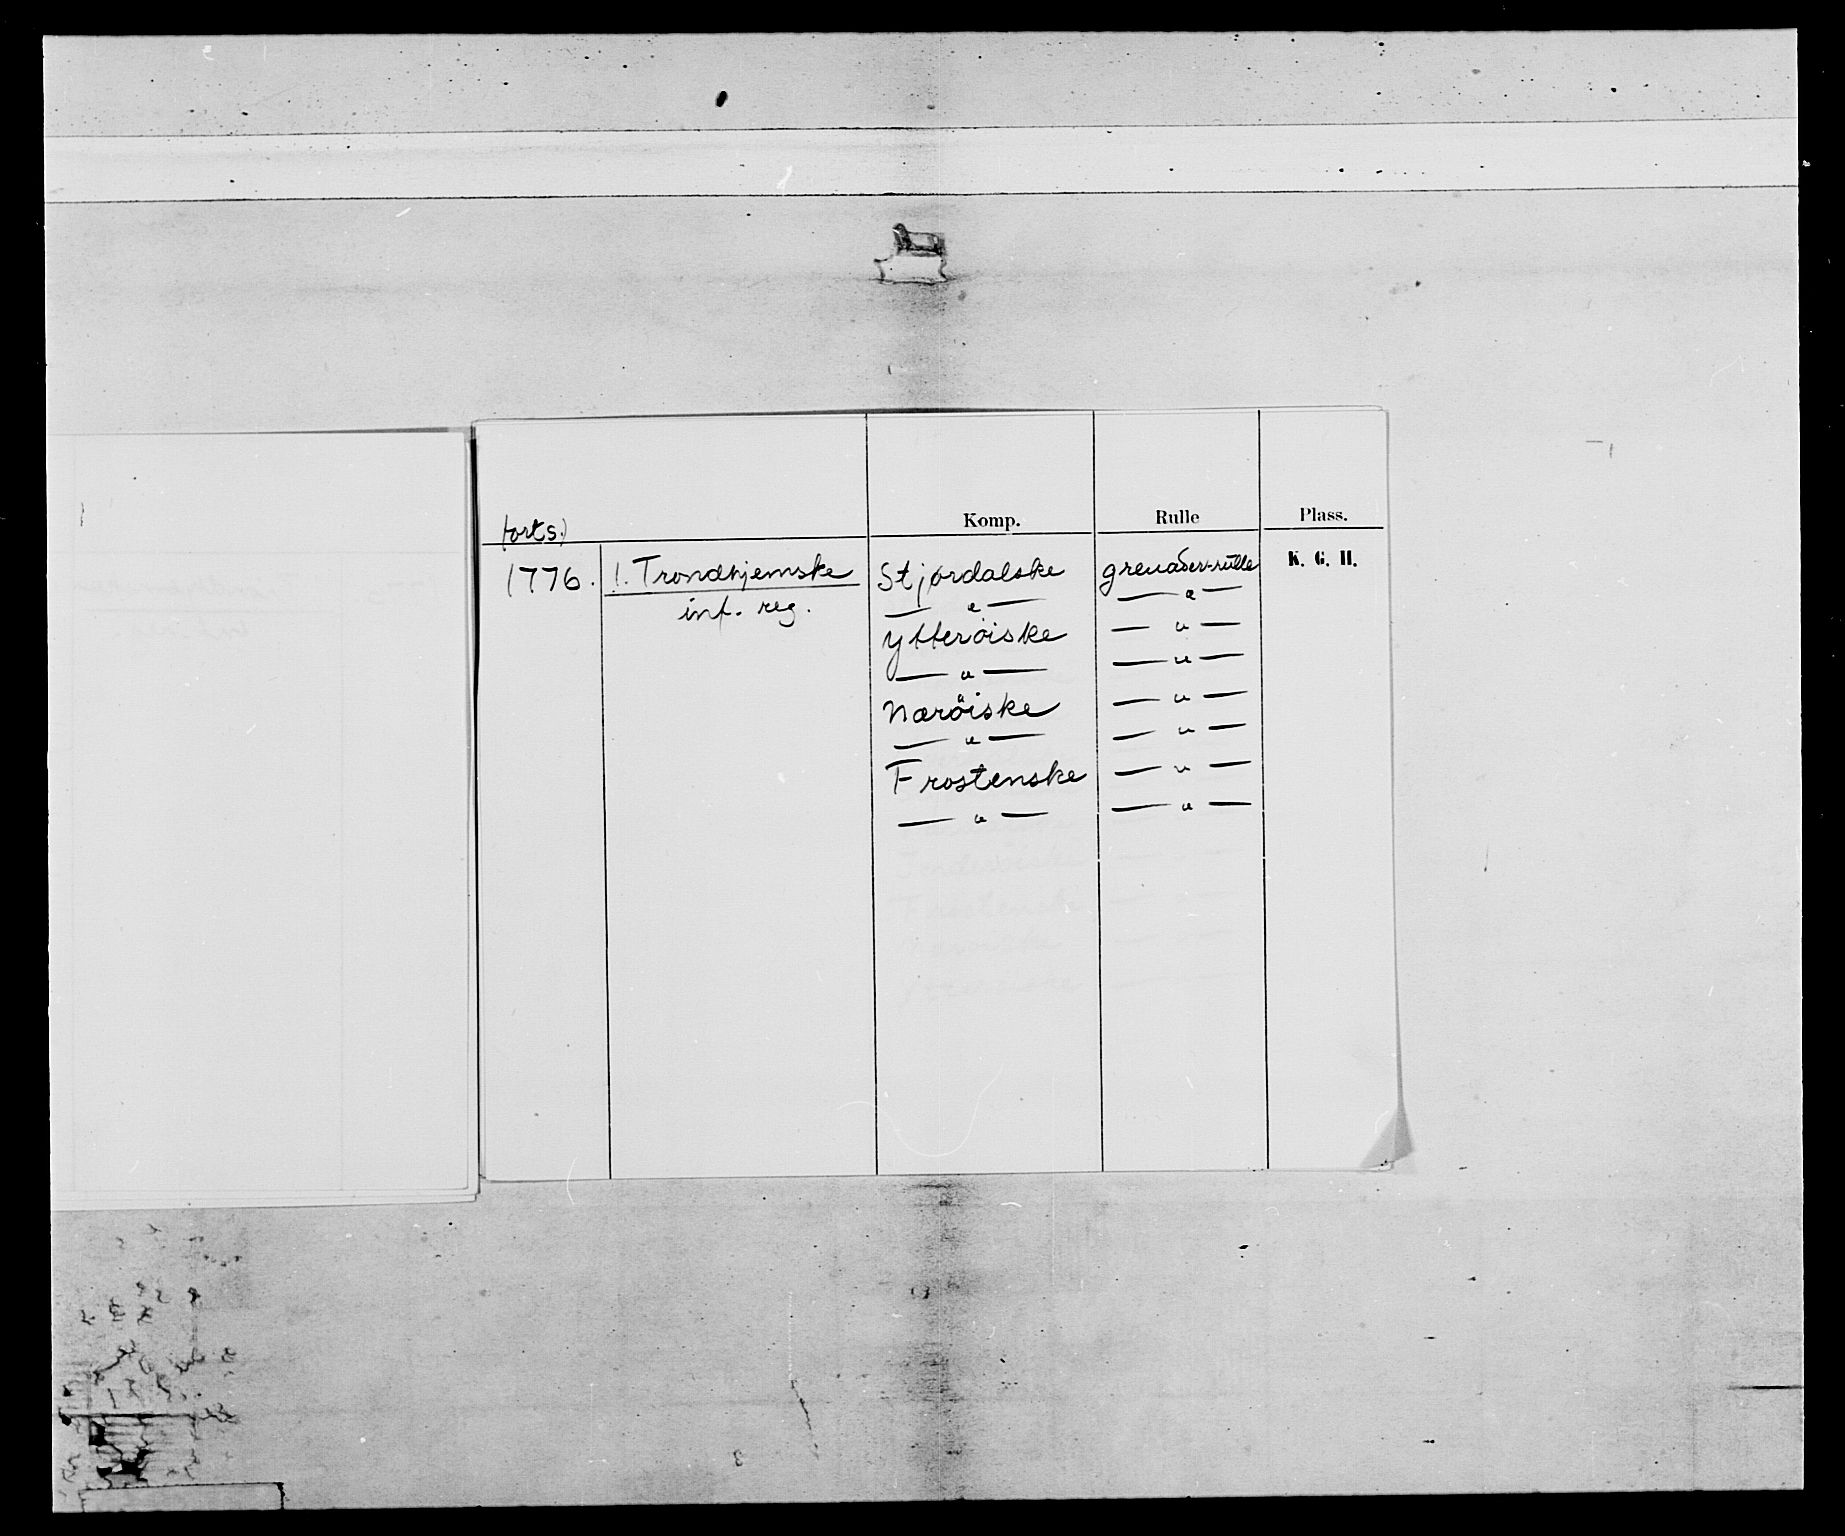 forts.)
Komp. Rulle Plass.
1776. 1. Trondhjemske Stjørdalske grenader-rulle K. G. H.
inf. reg. — " — — " —
Ytterøiske — " —
— " — — " —
Nærøiske — " —
— " — — " —
Frostenske — " —
— " — — " —